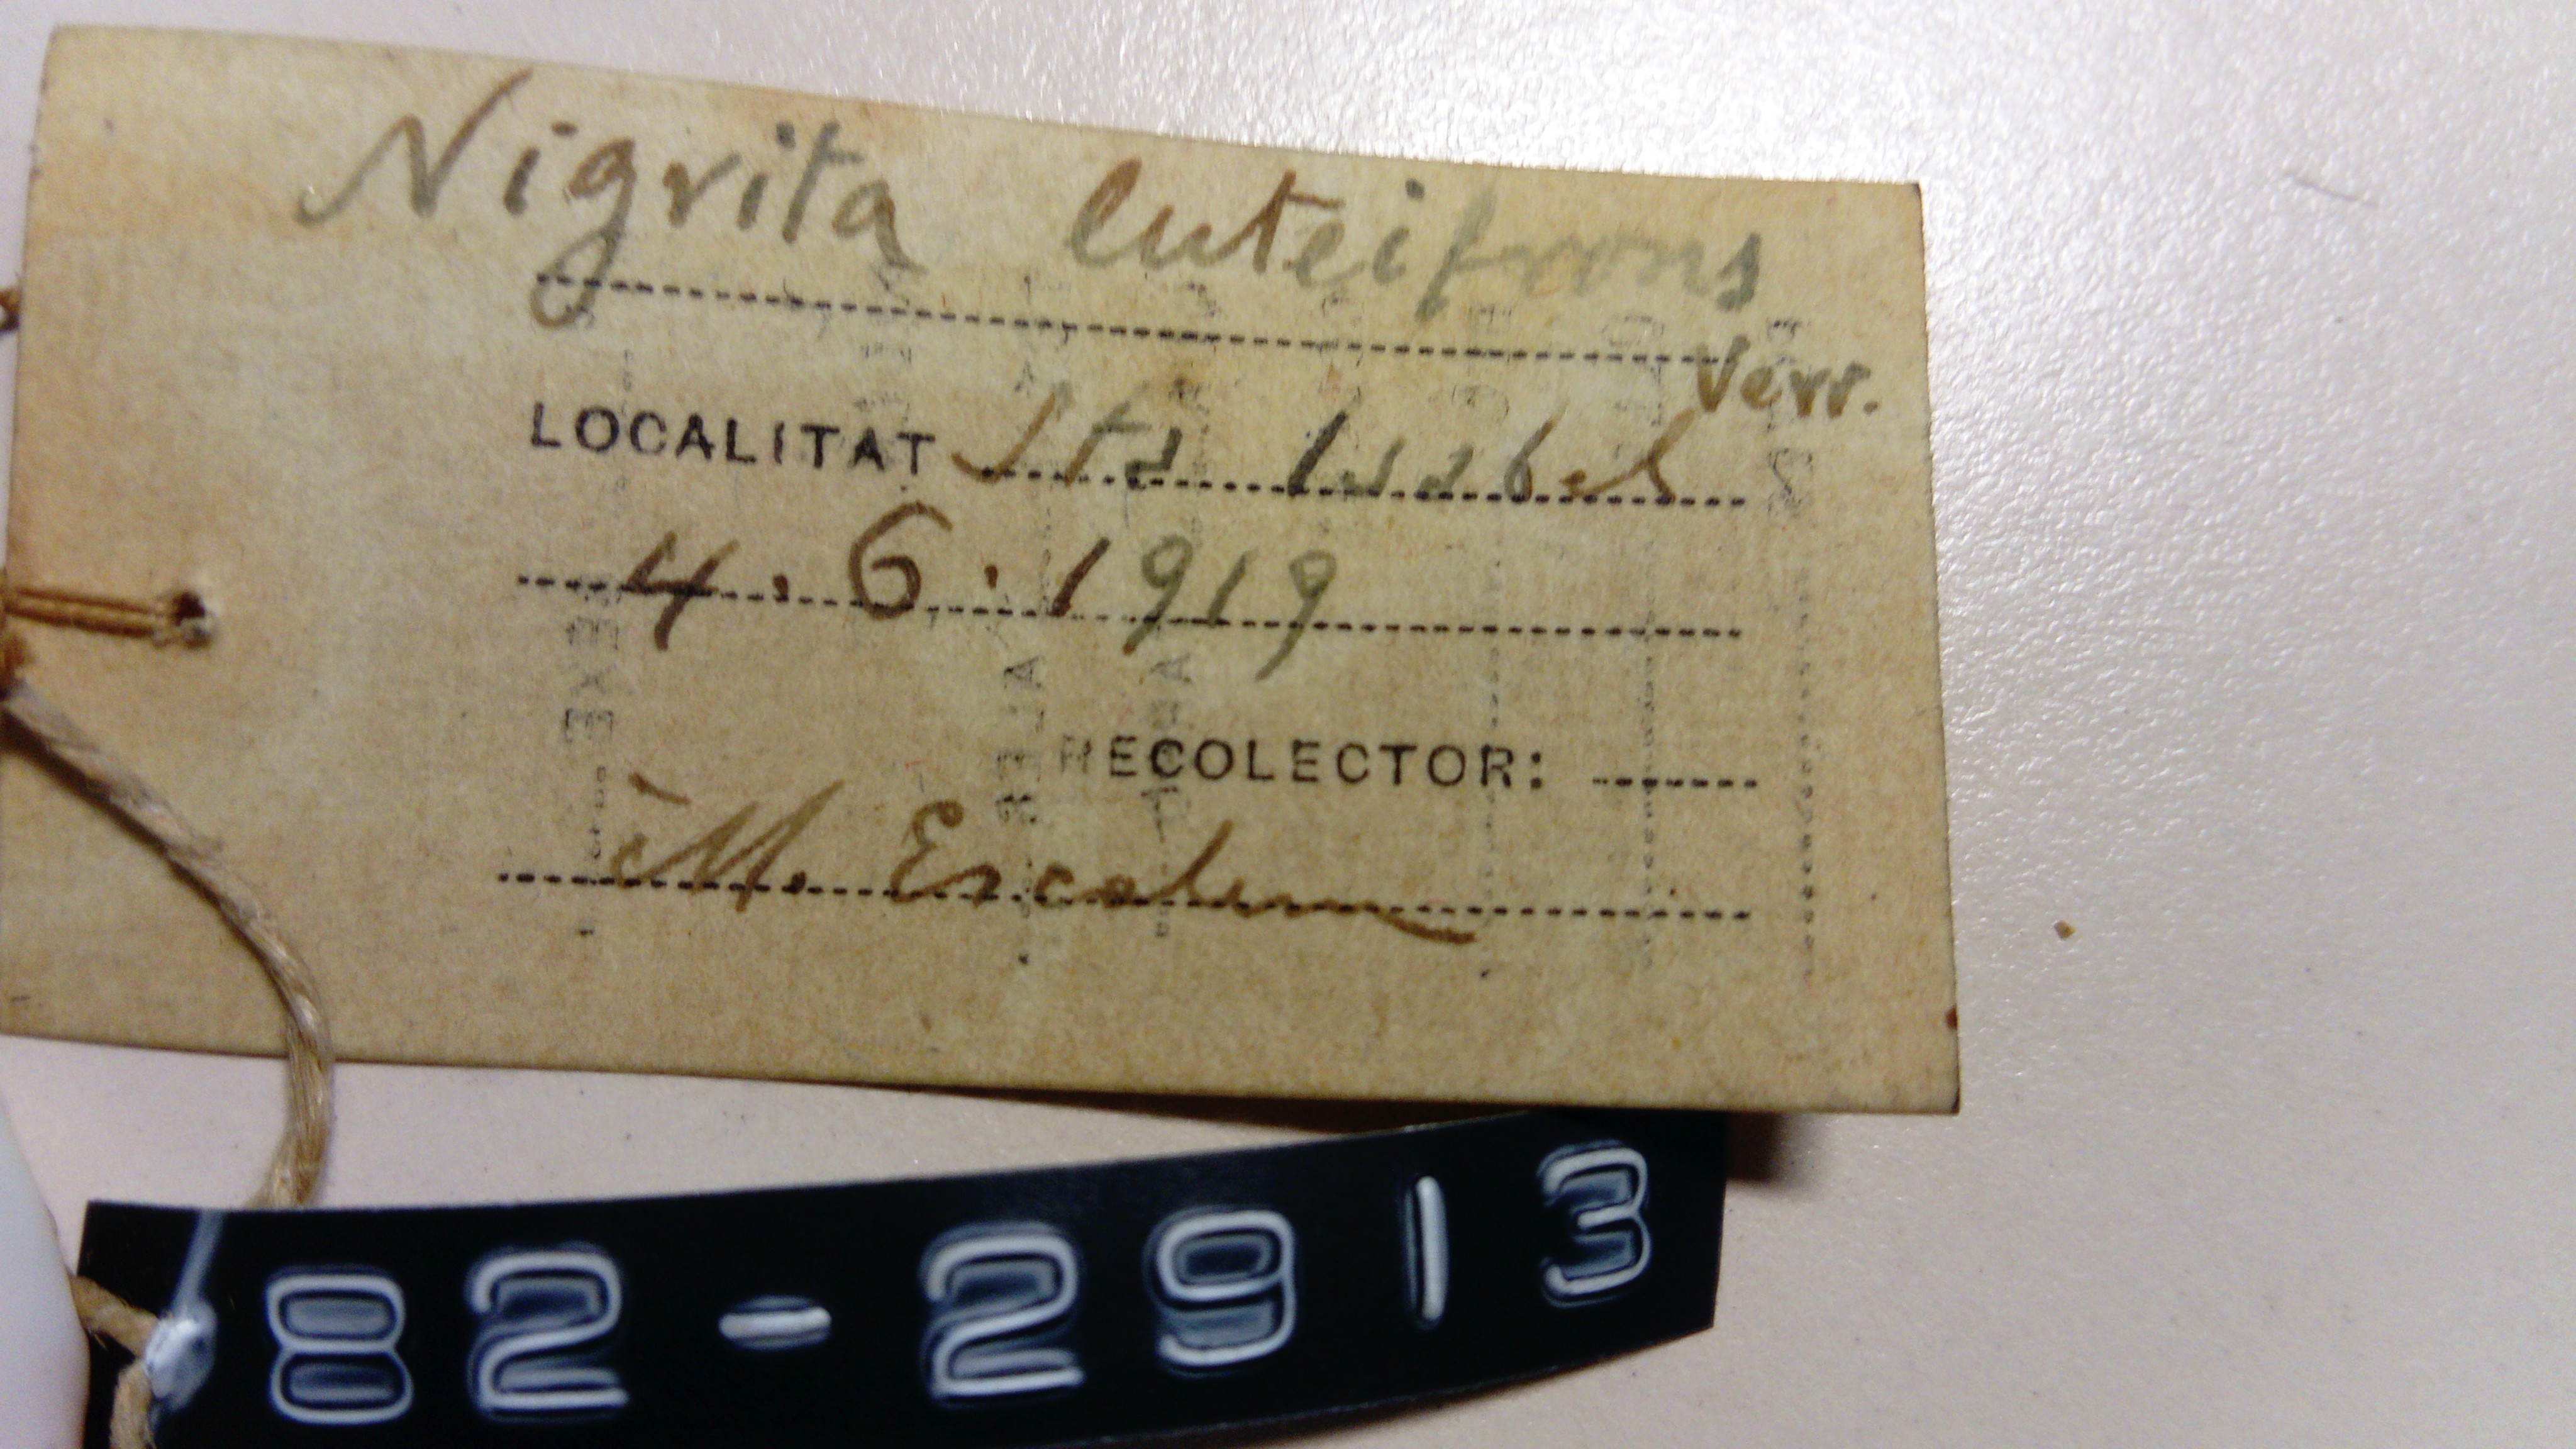 Nigrita luteifrons
Verr.
LOCALITAT Sta Isabel
4.6.1919
RECOLECTOR:
M. Escalera
82-2913